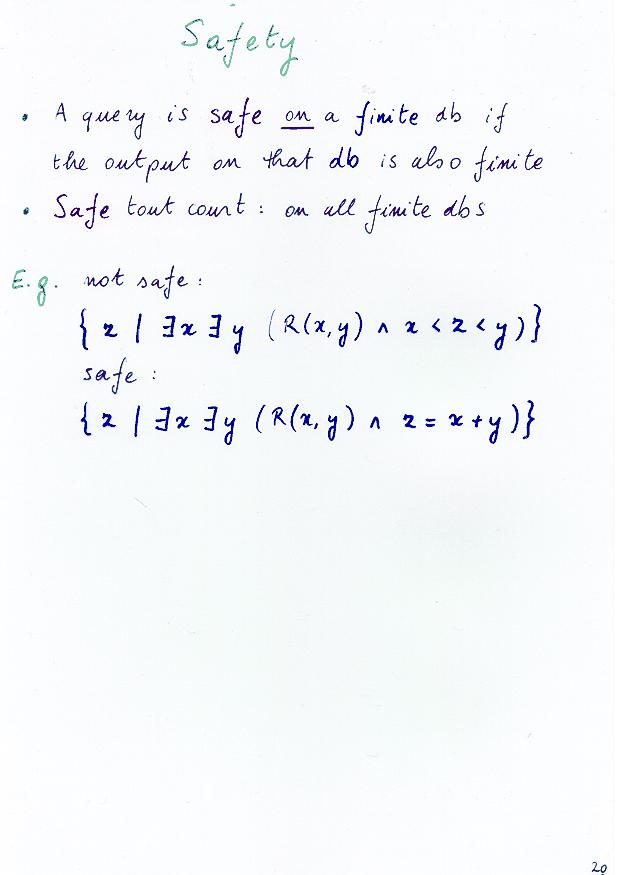 Safety
• A query is safe on a finite db if
the output on that db is also finite
• Safe tout court : on all finite dbs
E.g. not safe :
{ z | ∃x ∃y (R(x,y) ∧ x < z < y)}
safe :
{ z | ∃x ∃y (R(x,y) ∧ z = x + y)}
20